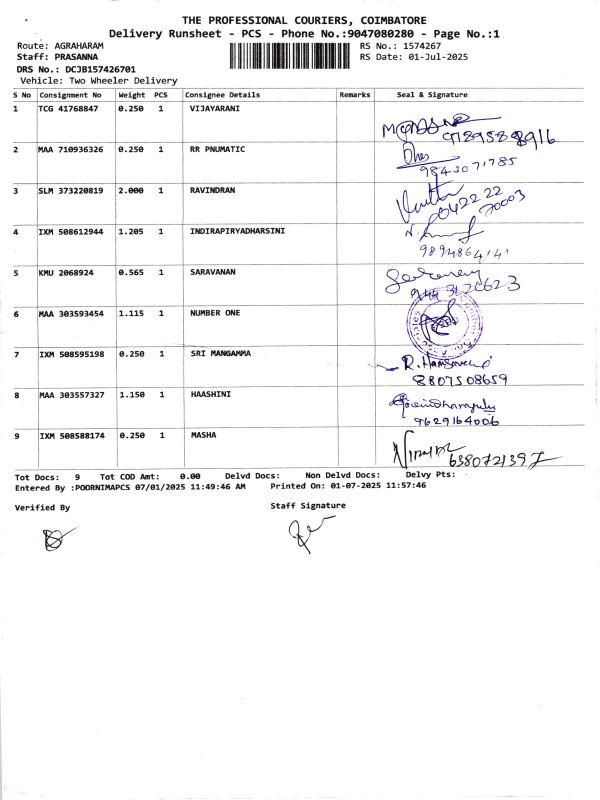 THE PROFESSIONAL COURIERS, COIMBATORE
Delivery Runsheet - PCS - Phone No.:9047080280 - Page No.:1
Route: AGRAHARAM RS No.: 1574267
Staff: PRASANNA RS Date: 01-Jul-2025
DRS No.: DCJB157426701
Vehicle: Two Wheeler Delivery
S No Consignment No Weight PCS Consignee Details Remarks Seal & Signature
1 TCG 41768847 0.250 1 VIJAYARANI
2 MAA 710936326 0.250 1 RR PNUMATIC
9843071785
3 SLM 373220819 2.000 1 RAVINDRAN
4 IXM 508612944 1.205 1 INDIRAPIRYADHARSINI
9894864141
5 KMU 2068924 0.565 1 SARAVANAN
6 MAA 303593454 1.115 1 NUMBER ONE
7 IXM 508595198 0.250 1 SRI MANGAMMA
8807508659
8 MAA 303557327 1.150 1 HAASHINI
9629164006
9 IXM 508588174 0.250 1 MASHA
6380721397
Tot Docs: 9 Tot COD Amt: 0.00 Delvd Docs: Non Delvd Docs: Delvy Pts:
Entered By :POORNIMAPCS 07/01/2025 11:49:46 AM Printed On: 01-07-2025 11:57:46
Verified By Staff Signature